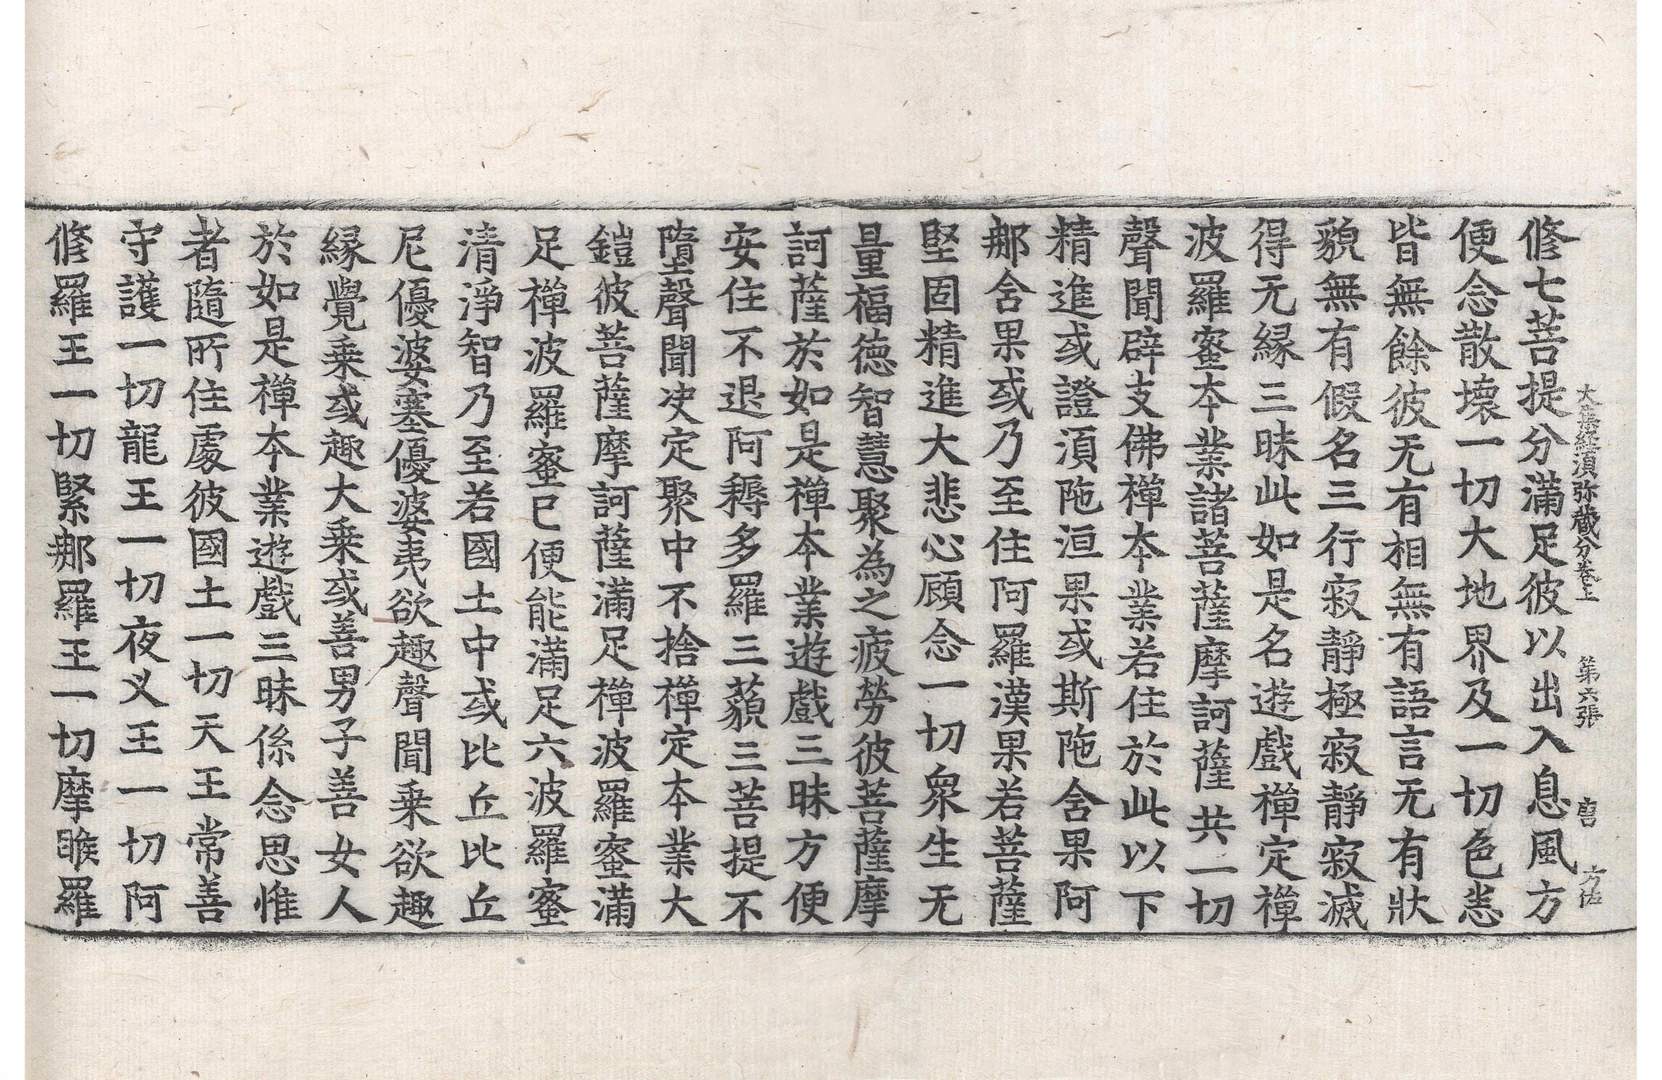 大集經湏弥藏分卷上　第六張　𠮷　方佑
修七菩提分滿足彼以出入息風方
便念散壞一切大地界及一切色悉
皆無餘彼无有相無有語言无有狀
貌無有假名三行寂靜極寂靜寂滅
得无緣三昧此如是名遊戲禪定禪
波羅蜜本業諸菩薩摩訶薩共一切
聲聞辟支佛禪本業若住於此以下
精進或證湏陁洹果或斯陁含果阿
那含果或乃至住阿羅漢果若菩薩
堅固精進大悲心顧念一切衆生无
量福德智慧聚為之疲勞彼菩薩摩
訶薩於如是禪本業遊戲三昧方便
安住不退阿耨多羅三藐三菩提不
墮聲聞决定聚中不捨禪定本業大
鎧彼菩薩摩訶薩滿足禪波羅蜜滿
足禪波羅蜜已便能滿足六波羅蜜
清淨智乃至若國土中或比丘比丘
尼優婆塞優婆夷欲趣聲聞乗欲趣
緣覺乗或趣大乗或善男子善女人
於如是禪本業遊戲三昧係念思惟
者隨所住處彼國土一切天王常善
守護一切龍王一切夜叉王一切阿
修羅王一切緊那羅王一切摩睺羅